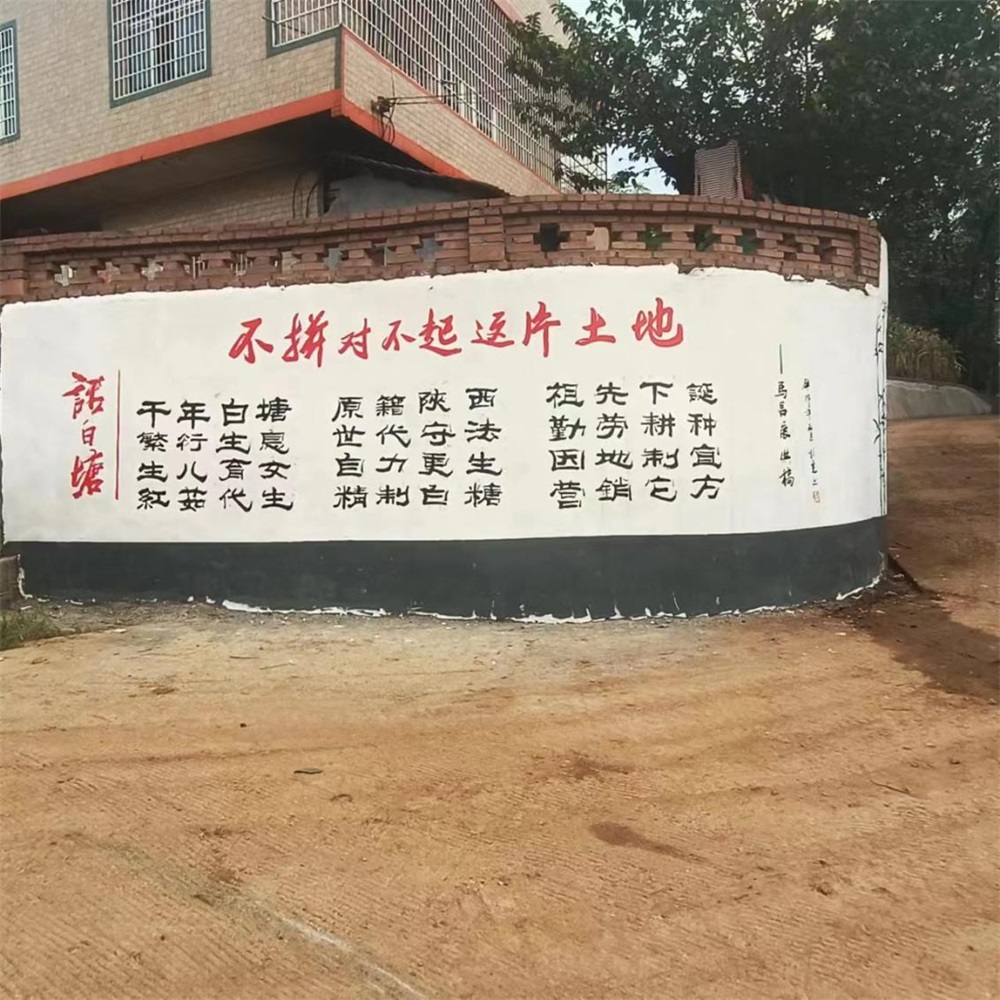 不拼对不起这片土地
話白塘
千年白塘
繁行生息
生儿育女
紅茹代生
原籍陕西
世代守法
自力更生
精制白糖
祖先下诞
勤劳耕种
因地制宜
营銷它方
馬昌泉供稿